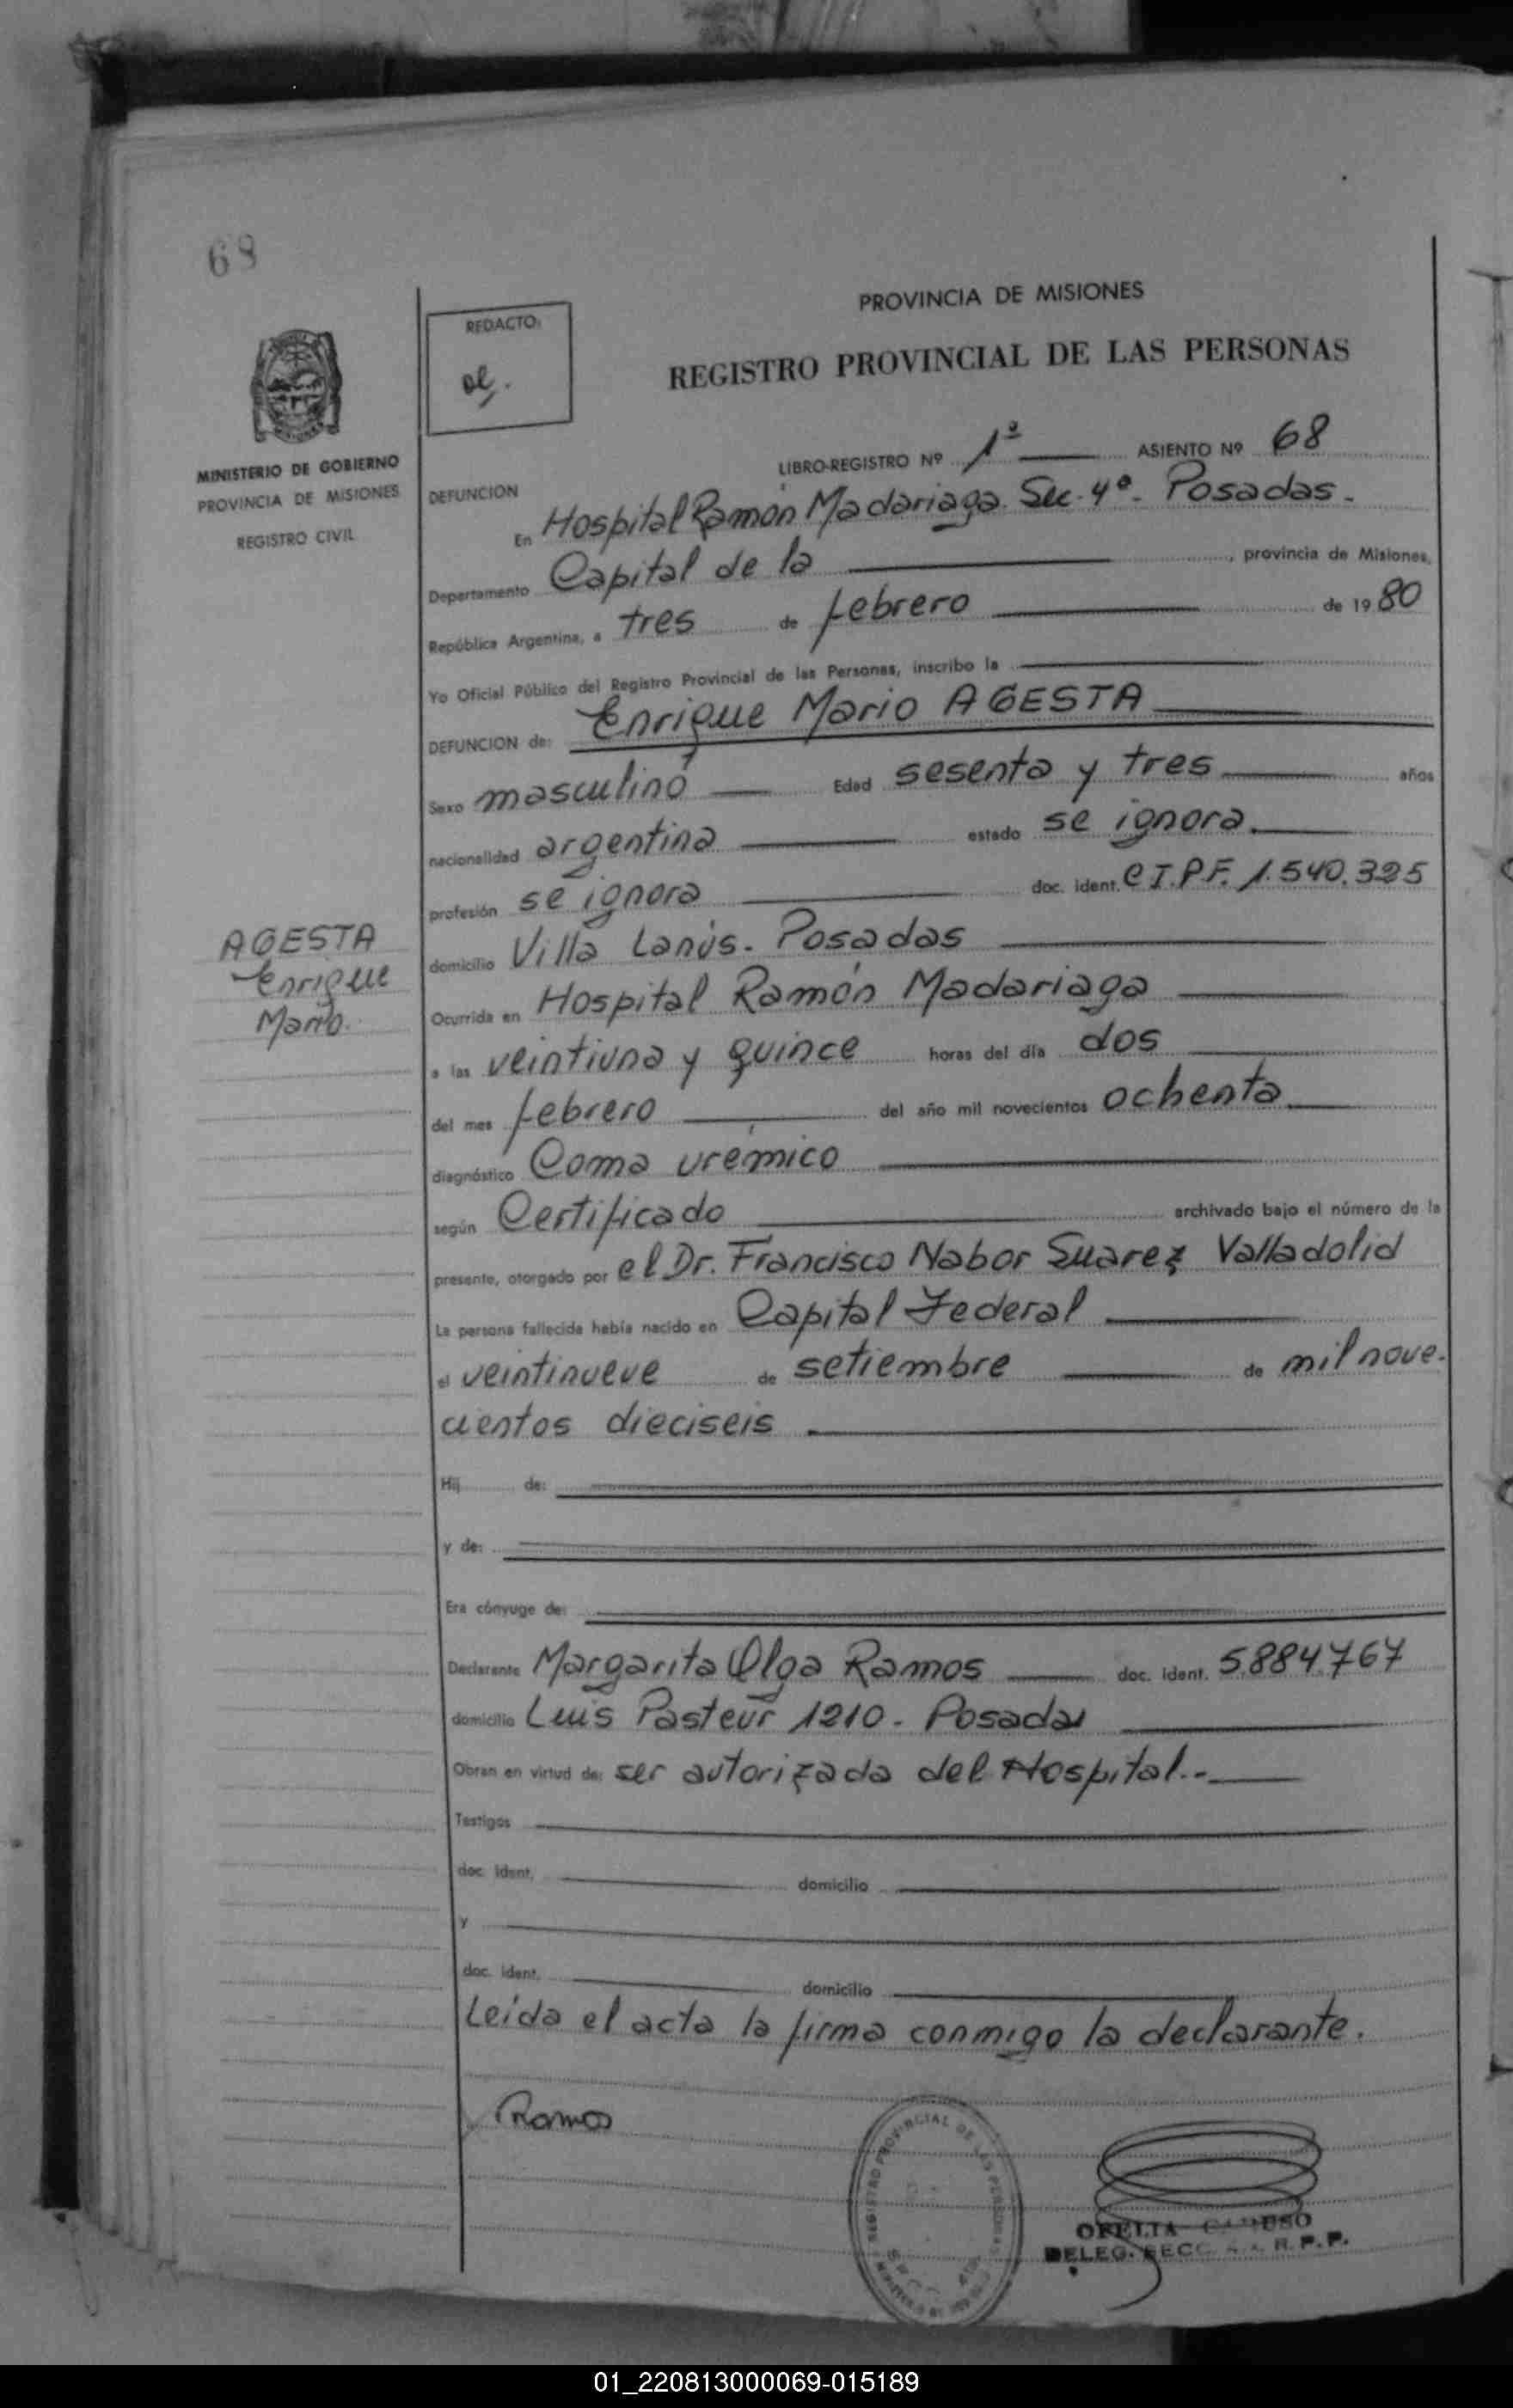 68
PROVINCIA DE MISIONES
REGISTRO PROVINCIAL DE LAS PERSONAS
REDACTO:
MINISTERIO DE GOBIERNO
PROVINCIA DE MISIONES
REGISTRO CIVIL
LIBRO-REGISTRO Nº 1º ASIENTO Nº 68
DEFUNCION
En Hospital Ramón Madariaga. Sec. 4º. Posadas.
Departamento Capital de la, provincia de Misiones,
República Argentina, a tres de febrero de 1980
Yo Oficial Público del Registro Provincial de las Personas, inscribo la
DEFUNCION de: Enrique Mario AGESTA
Sexo masculino Edad sesenta y tres años
nacionalidad argentina estado se ignora.
profesión se ignora doc. ident. C.I.P.F. 1.540.325
AGESTA
Enrique
Mario.
domicilio Villa Lanús. Posadas
Ocurrida en Hospital Ramón Madariaga
a las veintiuna y quince horas del día dos
del mes febrero del año mil novecientos ochenta
diagnóstico Coma urémico
según Certificado archivado bajo el número de la
presente, otorgado por el Dr. Francisco Nabor Suarez Valladolid
La persona fallecida había nacido en Capital Federal
el veintinueve de setiembre de mil nove.
cientos dieciseis
Hij de:
y de:
Era cónyuge de:
Declarante Margarita Olga Ramos doc. ident. 5.884.767
domicilio Luis Pasteur 1210. Posadas
Obran en virtud de: ser autorizada del Hospital.-
Testigos
doc. ident. domicilio
y
doc. ident. domicilio
Leída el acta la firma conmigo la declarante.
Ramos
REGISTRO PROVINCIAL DE LAS PERSONAS
OFELIA
DELEG. SECC. R. P. P.
01_220813000069-015189